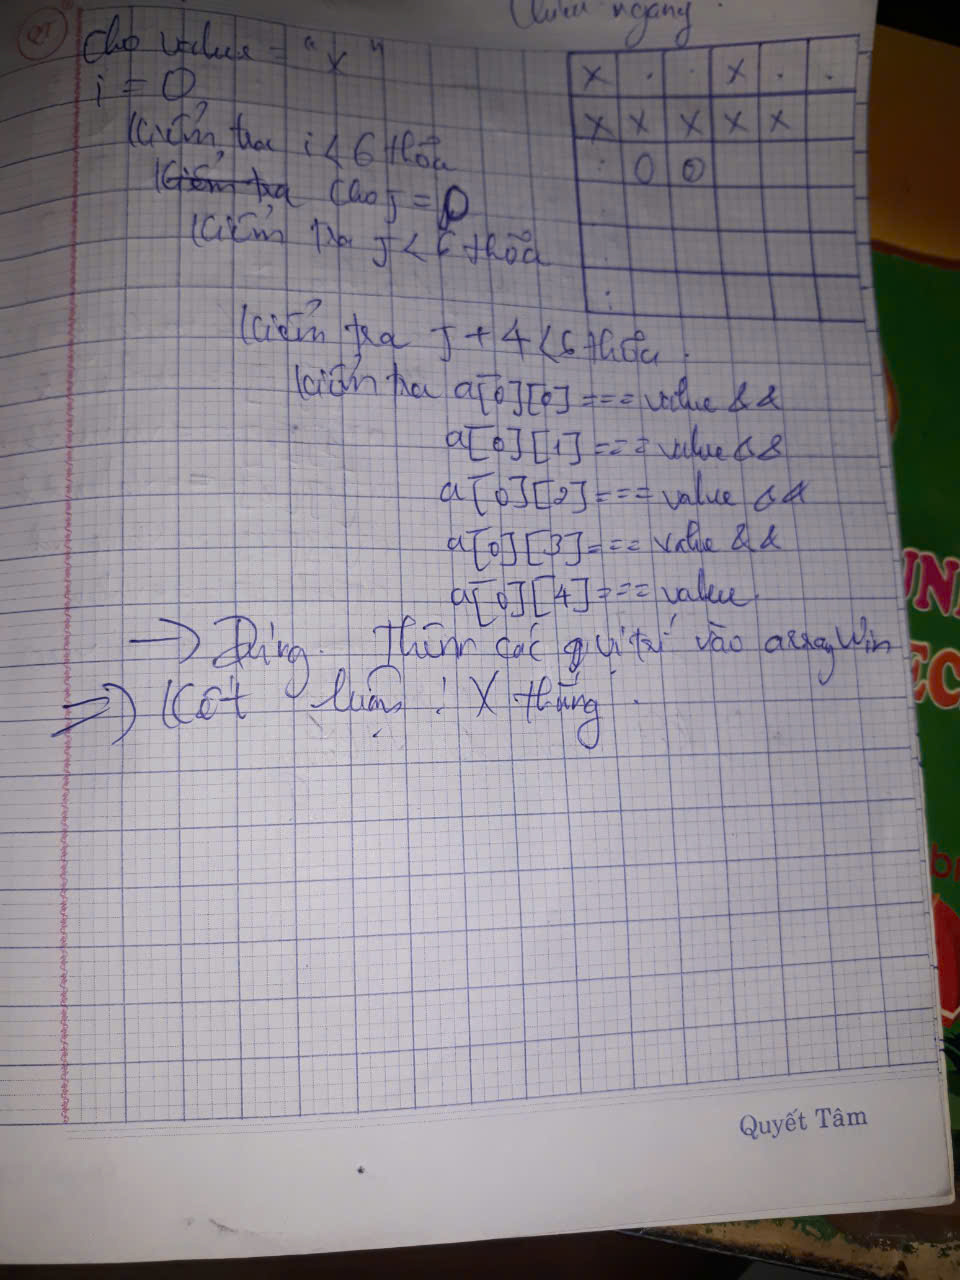 Chiều ngang.
Q1
Cho value = "X"
i = 0
Kiểm tra i < 6 thỏa
Kiểm tra Cho j = 0
Kiểm tra j < 6 thỏa
X . . X . .
X X X X X
. O O
.
.
:
Kiểm tra j + 4 < 6 thỏa.
Kiểm tra a[0][0] === value &&
a[0][1] === value &&
a[0][2] === value &&
a[0][3] === value &&
a[0][4] === value
→ Đúng. Thêm các vị trí vào arrayWin
⇒ Kết luận: X thắng.
UN
EC
Quyết Tâm